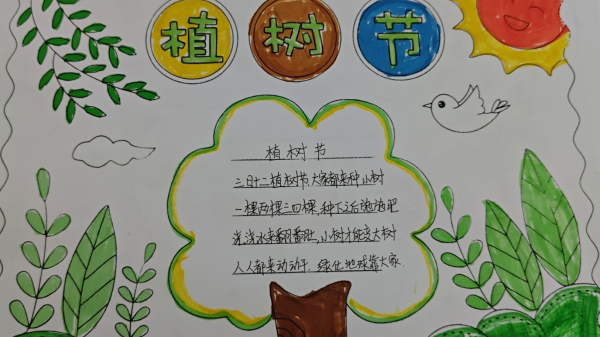 植树节
植树节
三月十二植树节大家都来种小树
一棵两棵三四棵,种下之后勤浇肥
来浇水来翻番肚,小树才能变大树
人人都来动动手,绿化地球靠大家